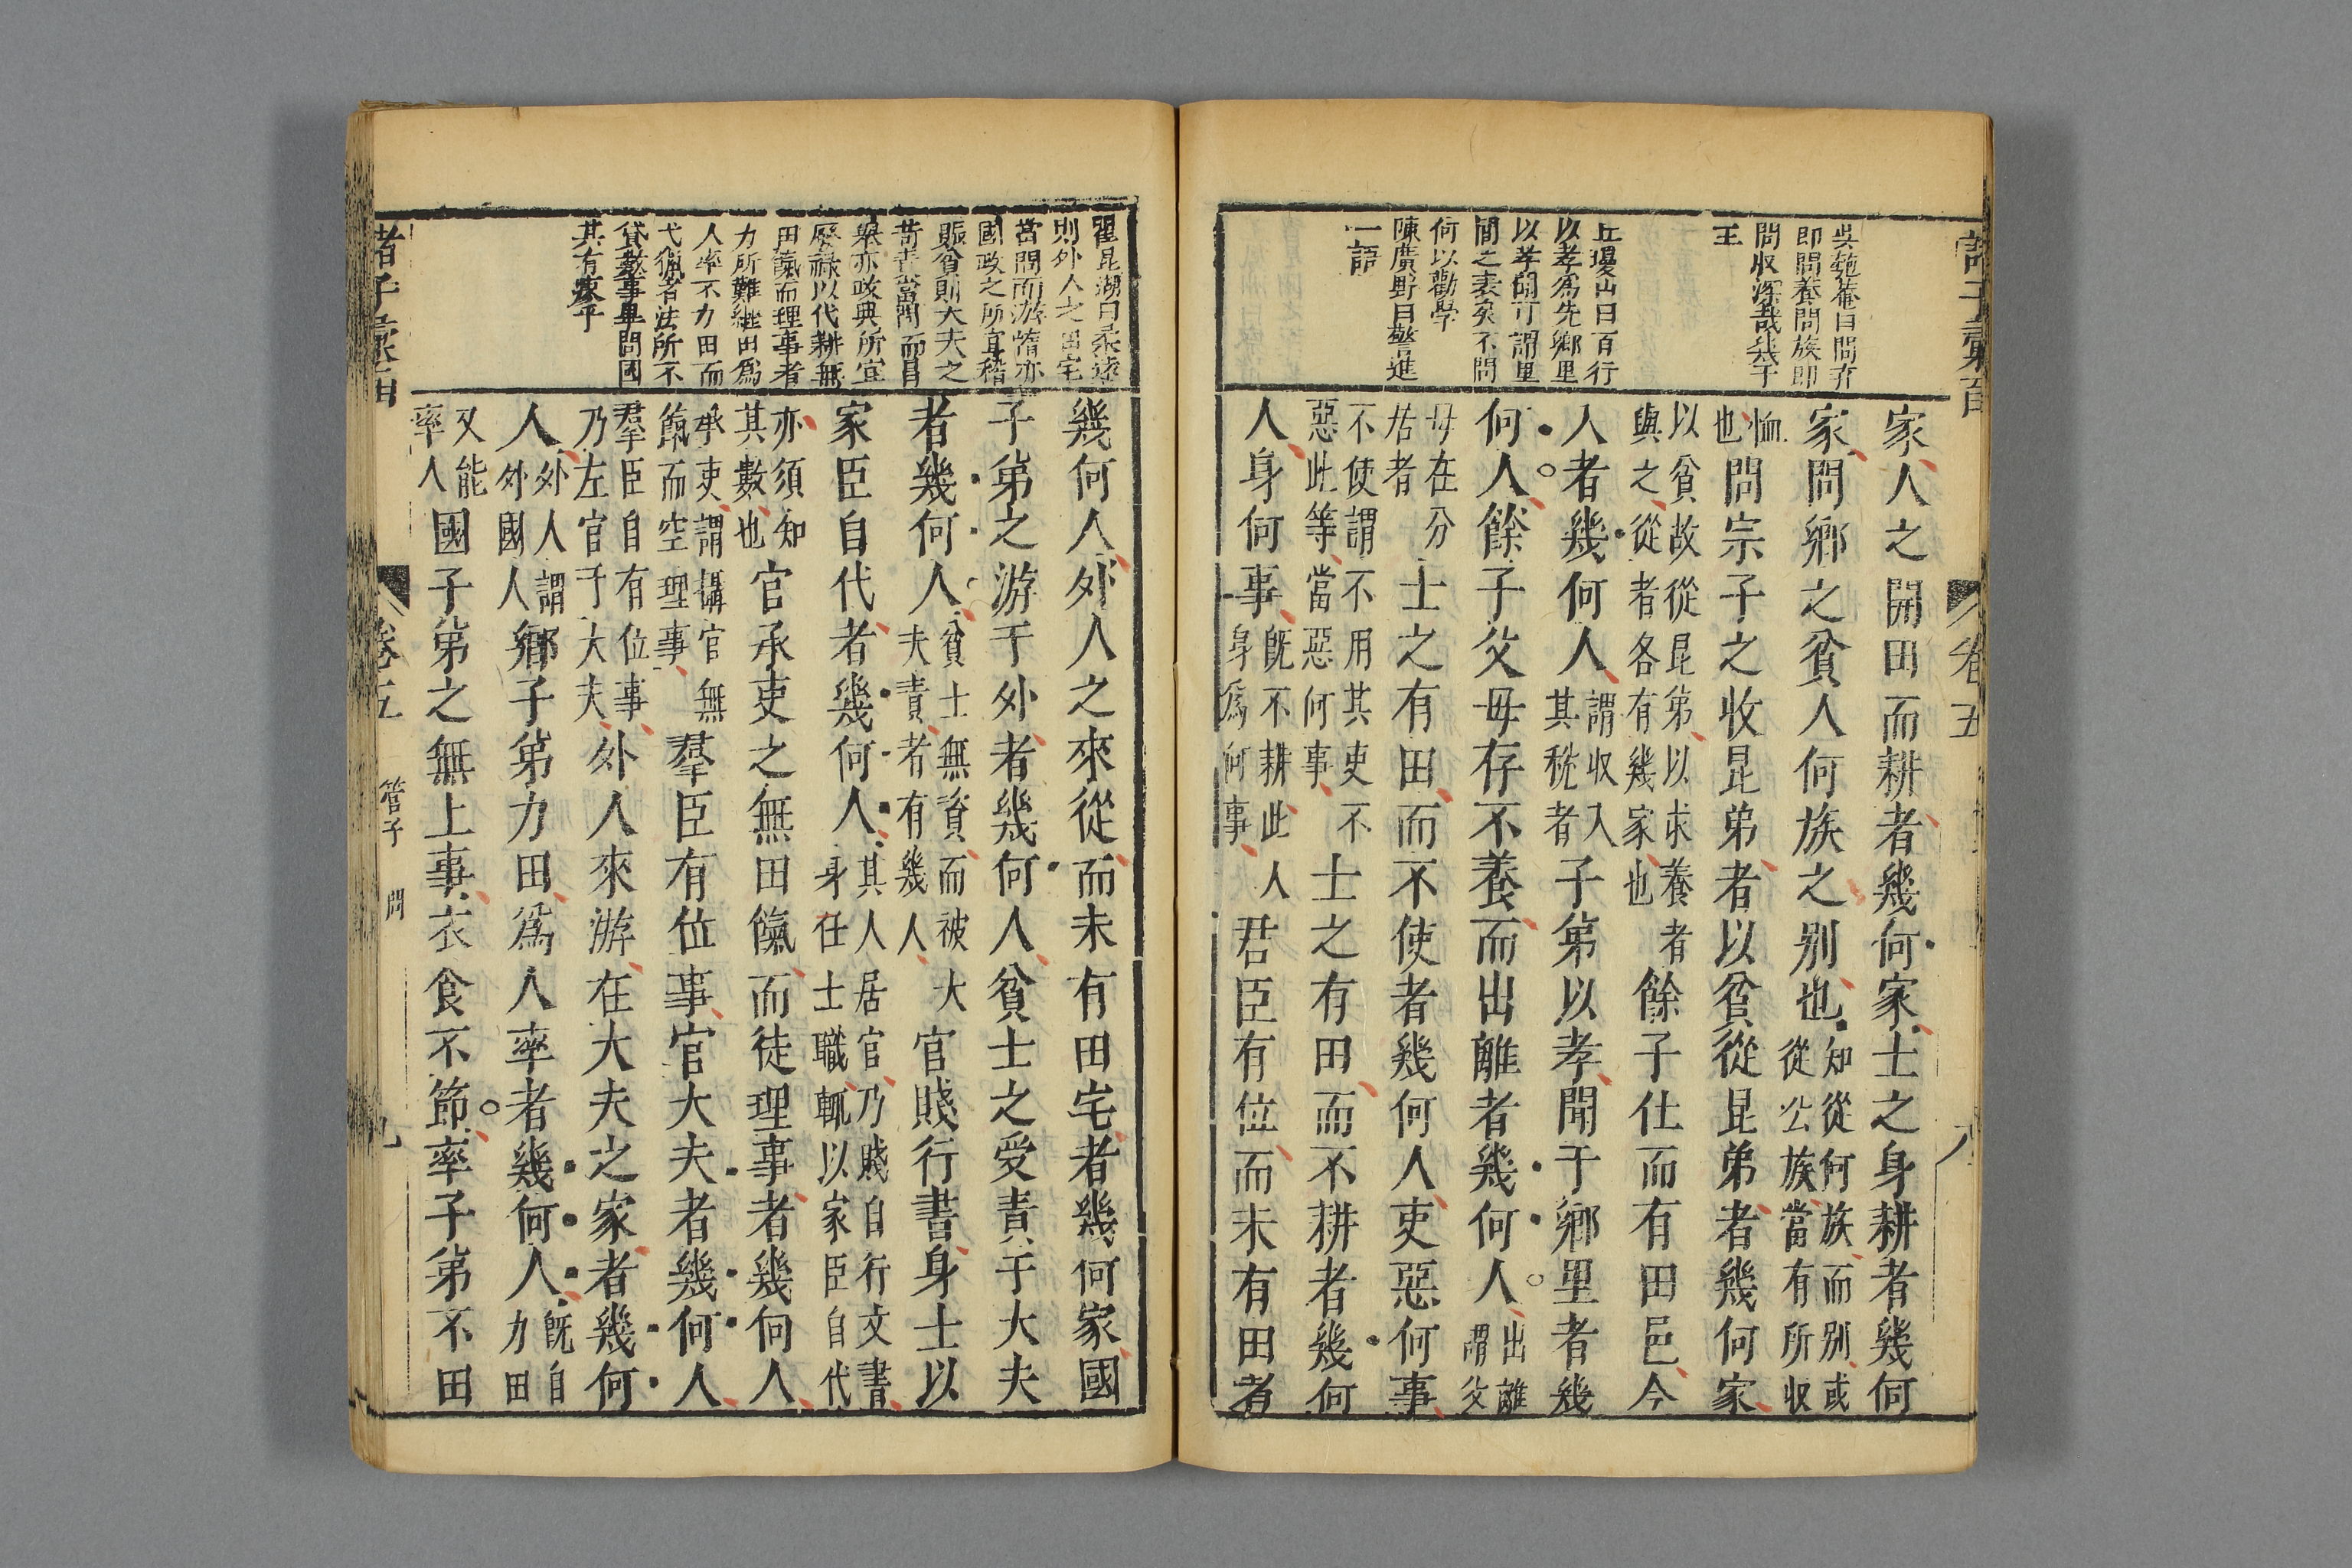 吳匏菴曰問弃
即問養問族即
問收深哉幾于
王
丘瓊山曰百行
以孝為先鄉里
以孝聞可謂里
閭之表矣不問
何以勸學
陳廣野曰警進
一語
家人之開田而耕者幾何家士之身耕者幾何
家問鄉之貧人何族之别也知從何族而别或
從公族當有所收
恤
也問宗子之收昆弟者以貧從昆弟者幾何家
以貧故從昆弟以求養者
與之從者各有幾家也餘子仕而有田邑今
入者幾何人謂收入
其稅者子弟以孝聞于鄉里者幾
何人餘子父母存不養而出離者幾何人出離
謂父
母在分
居者士之有田而不使者幾何人吏惡何事
不使謂不用其吏不
惡此等當惡何事士之有田而不耕者幾何
人身何事既不耕此人
身為何事君臣有位而未有田者
諸子彚函
卷五
八
翟昆湖曰柔遠
則外人之田宅
當問而游惰亦
國政之所宜稽
賑貧則大夫之
苛責當問而自
舉亦政典所宜
歷祿以代耕無
田餼而理事者
力所難繼田為
人率不力田而
弋獵者法所不
貸數事畢問國
其有瘳乎
幾何人外人之來從而未有田宅者幾何家國
子弟之游于外者幾何人貧士之受責于大夫
者幾何人貧士無資而被大
夫責者有幾人官賤行書身士以
家臣自代者幾何人其人居官乃賤自行文書
身任士職輒以家臣自代
亦須知
其數也官承吏之無田餼而徒理事者幾何人
承吏謂攝官無
餼而空理事羣臣有位事官大夫者幾何人
羣臣自有位事
乃左官于大夫外人來游在大夫之家者幾何
人外人謂
外國人鄉子弟力田為人率者幾何人既自
力田
又能
率人國子弟之無上事衣食不節率子弟不田
卷五
管子
問
九